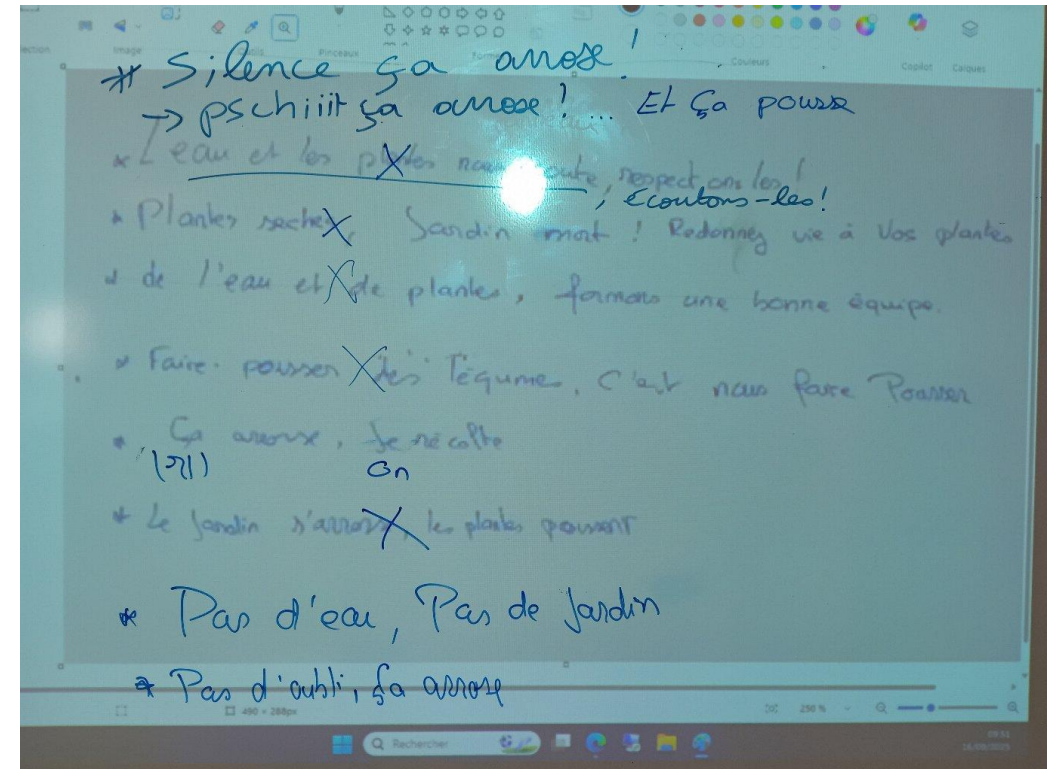 Image
Pinceaux
Couleurs
Copilot Calques
* Silence ça arrose !
→ pschiiit ça arrose !... Et ça pousse
* L'eau et les plantes nous, respectons les !
, écoutons-les !
* Plantes seches, Jardin mort ! Redonnez vie à vos plantes
* de l'eau et de plantes, formons une bonne équipe.
* Faire pousser des légumes, c'est nous faire Pousser
* Ça arrose, Je récolte
on
* Le Jardin s'arrose, les plantes poussent
* Pas d'eau, Pas de Jardin
* Pas d'oubli, ça arrose
490 × 288px
250 %
Rechercher
09:51
16/09/2025